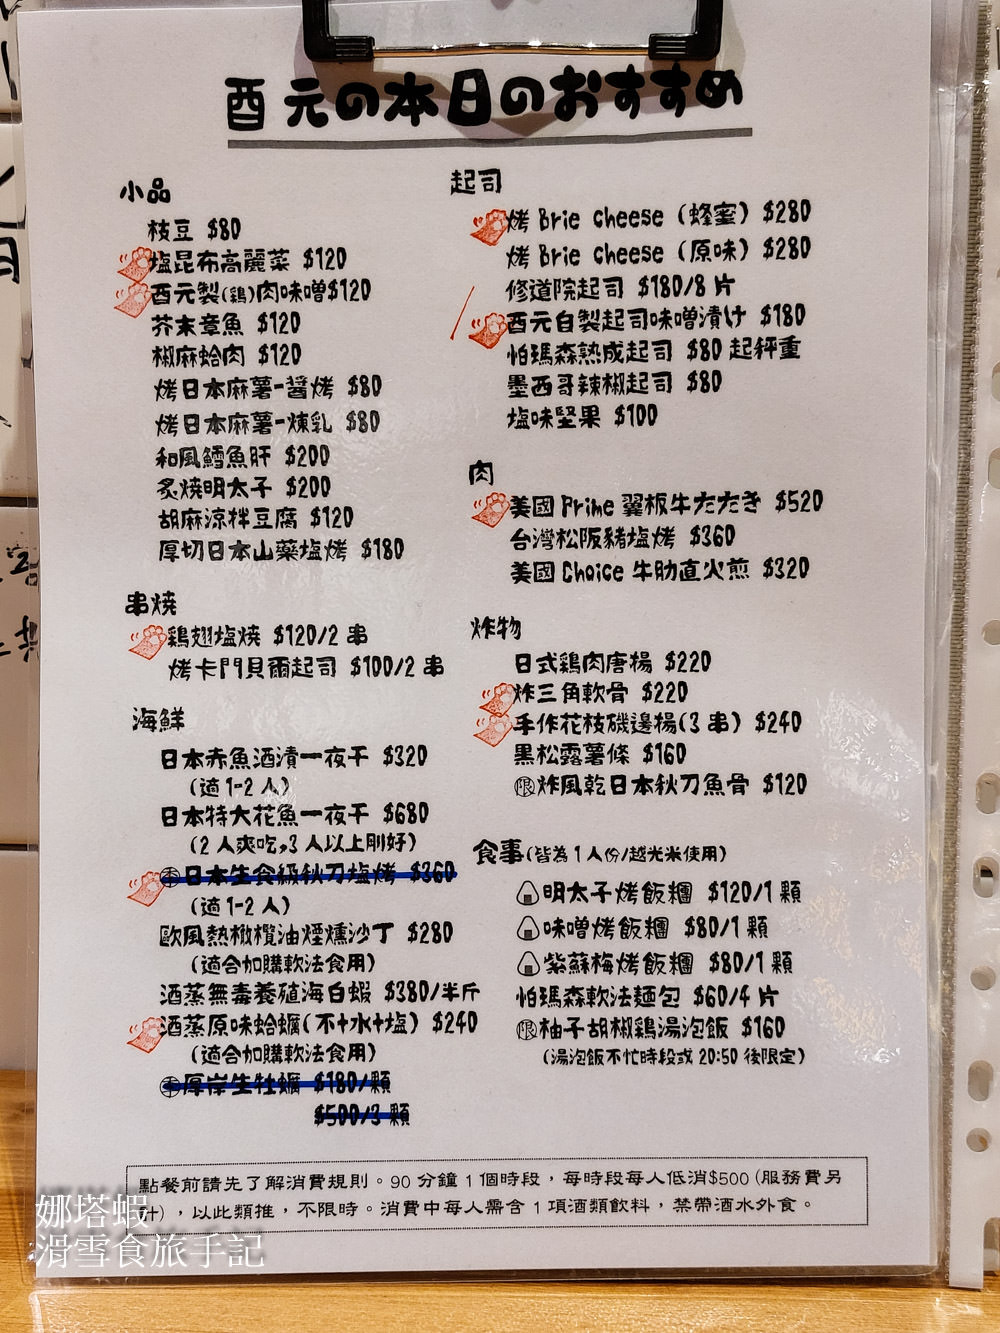 酉元の本日のおすすめ
小品
枝豆 $80
塩昆布高麗菜 $120
酉元製(鶏)肉味噌$120
芥末章魚 $120
椒麻蛤肉 $120
烤日本麻薯-醬烤 $80
烤日本麻薯-煉乳 $80
和風鱈魚肝 $200
炙燒明太子 $200
胡麻涼拌豆腐 $120
厚切日本山藥塩烤 $180
串燒
鶏翅塩燒 $120/2 串
烤卡門貝爾起司 $100/2 串
海鮮
日本赤魚酒漬一夜干 $320
(適 1-2 人)
日本特大花魚一夜干 $680
(2 人爽吃,3 人以上剛好)
日本生食級秋刀塩烤 $360
(適 1-2 人)
歐風熱橄欖油煙燻沙丁 $280
(適合加購軟法食用)
酒蒸無毒養殖海白蝦 $380/半斤
酒蒸原味蛤蠣(不+水+塩) $240
(適合加購軟法食用)
厚岸生牡蠣 $180/顆
$500/3 顆
起司
烤 Brie cheese (蜂蜜) $280
烤 Brie cheese (原味) $280
修道院起司 $180/8 片
酉元自製起司味噌漬け $180
帕瑪森熟成起司 $80 起秤重
墨西哥辣椒起司 $80
塩味堅果 $100
肉
美國 Prime 翼板牛たたき $520
台灣松阪豬塩烤 $360
美國 Choice 牛肋直火煎 $320
炸物
日式鶏肉唐揚 $220
炸三角軟骨 $220
手作花枝磯邊揚(3 串) $240
黑松露薯條 $160
限炸風乾日本秋刀魚骨 $120
食事(皆為 1 人份/越光米使用)
明太子烤飯糰 $120/1 顆
味噌烤飯糰 $80/1 顆
紫蘇梅烤飯糰 $80/1 顆
帕瑪森軟法麵包 $60/4 片
限柚子胡椒鶏湯泡飯 $160
(湯泡飯不忙時段或 20:50 後限定)
點餐前請先了解消費規則。90 分鐘 1 個時段，每時段每人低消$500 (服務費另
計)，以此類推，不限時。消費中每人需含 1 項酒類飲料，禁帶酒水外食。
娜塔蝦
滑雪食旅手記